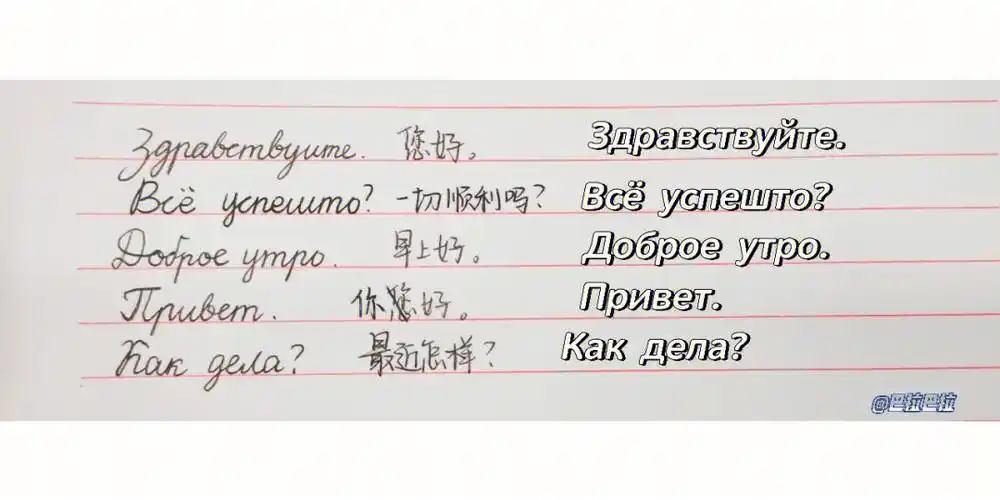 Здравствуите. 您好。 Здравствуйте.
Всё успешто? 一切顺利吗? Всё успешто?
Доброе утро. 早上好。 Доброе утро.
Привет. 你好。 Привет.
Как дела? 最近怎样? Как дела?
@巴拉巴拉